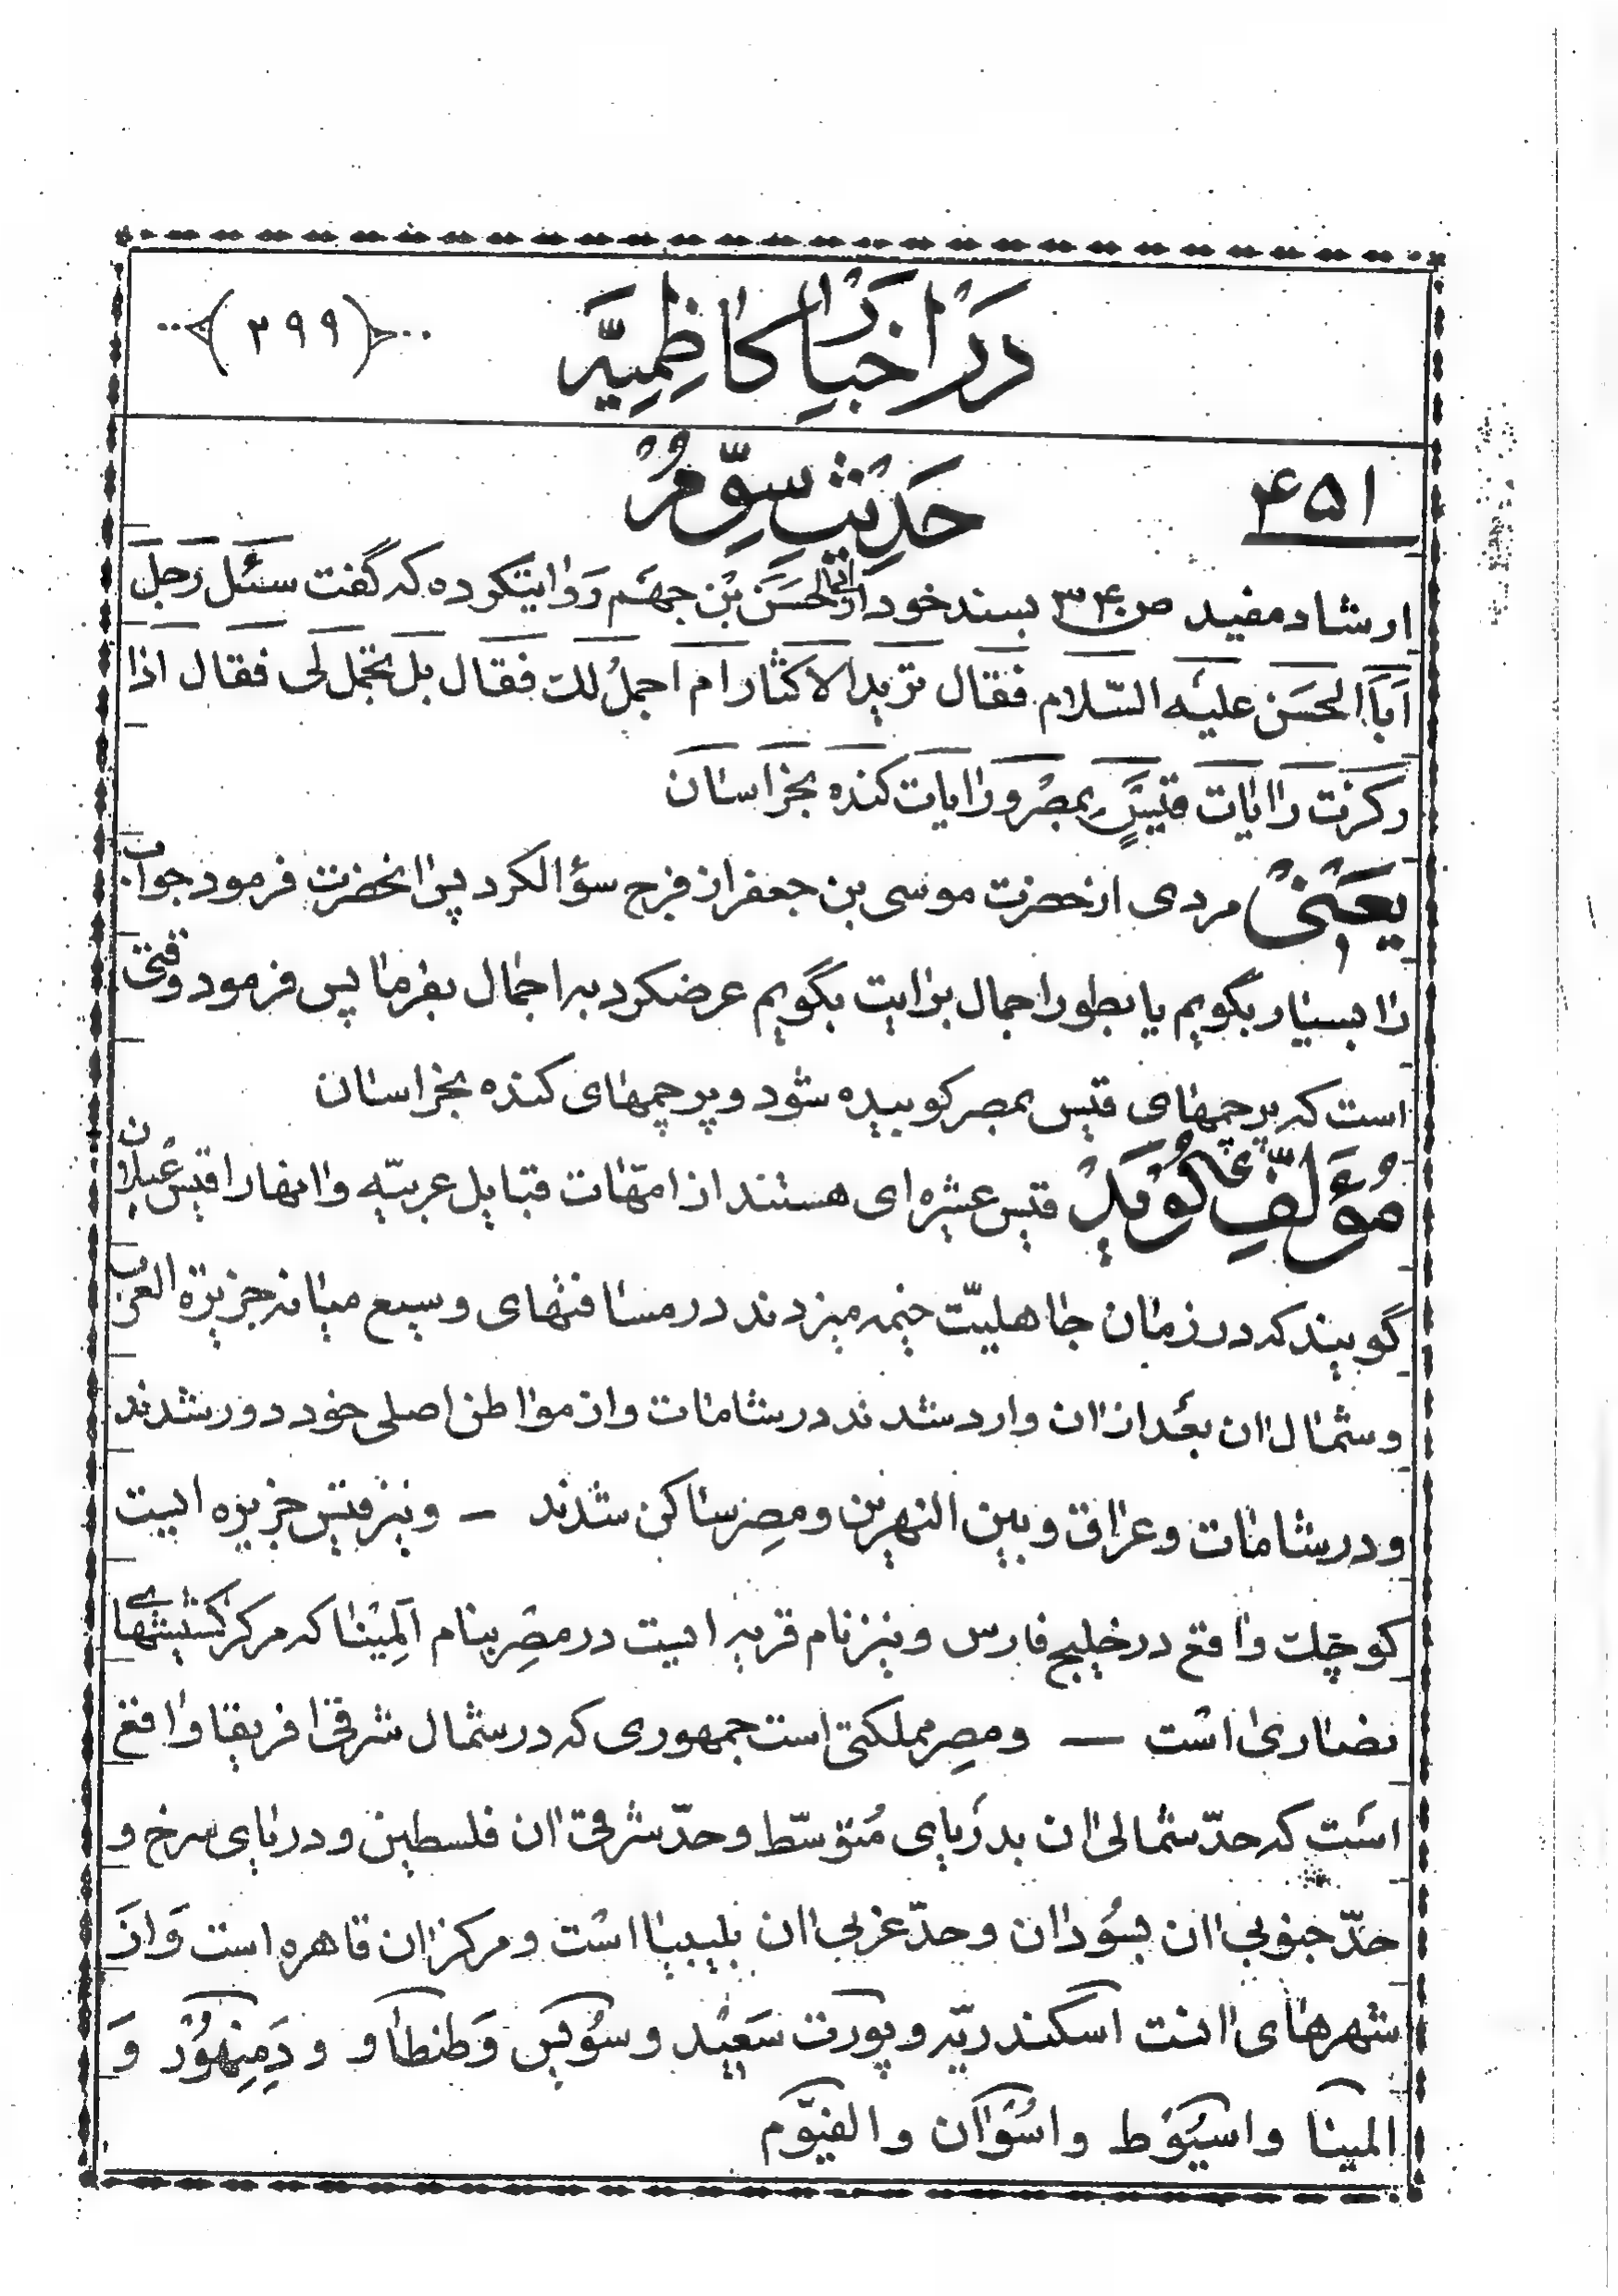 در اخبار کاظمیّه
(۲۹۹)
حدیث سوّم
۴۵۱
ارشاد مفید ص ۳۴۰ بسند خود از ابی الحسن بن جهم روایتکرده که گفت سئل رجل
أبا الحسن علیه السّلام فقال ترید الاکثار ام اجملُ لك فقال بل تجمل لی فقال اذا
رکزت رایات قیسٍ بمصر و رایات کنده بخراسان
یعنی مردی از حضرت موسی بن جعفر از فرج سؤالکرد پس آنحضرت فرمود جواب
را بسیار بگویم یا بطور اجمال برایت بگویم عرضکرد به اجمال بفرما پس فرمود وقتی
است که پرچمهای قیس بمصر کوبیده شود و پرچمهای کنده بخراسان
مؤلّف گوید قیس عشیره ای هستند از امّهات قبایل عربیّه و آنهارا قیس عیلان
گویند که در زمان جاهلیّت خیمه میزدند در مسافتهای وسیع میانه جزیرة العرب
و شمال آن بعد از آن وارد شدند در شامات و از مواطن اصلی خود دور شدند
و در شامات و عراق و بین النهرین و مصر ساکن شدند – و نیز قیس جزیره ایست
کوچك واقع در خلیج فارس و نیز نام قریه ایست در مصر بنام المینا که مرکز کشیشهای
نصاری است – و مصر مملکتی است جمهوری که در شمال شرقی افریقا واقع
است که حدّ شمالی آن بدریای متوسّط و حدّ شرقی آن فلسطین و دریای سرخ و
حدّ جنوبی آن بسودان و حدّ غربی آن بلیبیا است و مرکز آن قاهره است و از
شهرهای آنت اسکندریّه و پورت سعید و سویس و طنطا و و دمنهور و
المینا و اسیوط و اسوان و الفیّوم